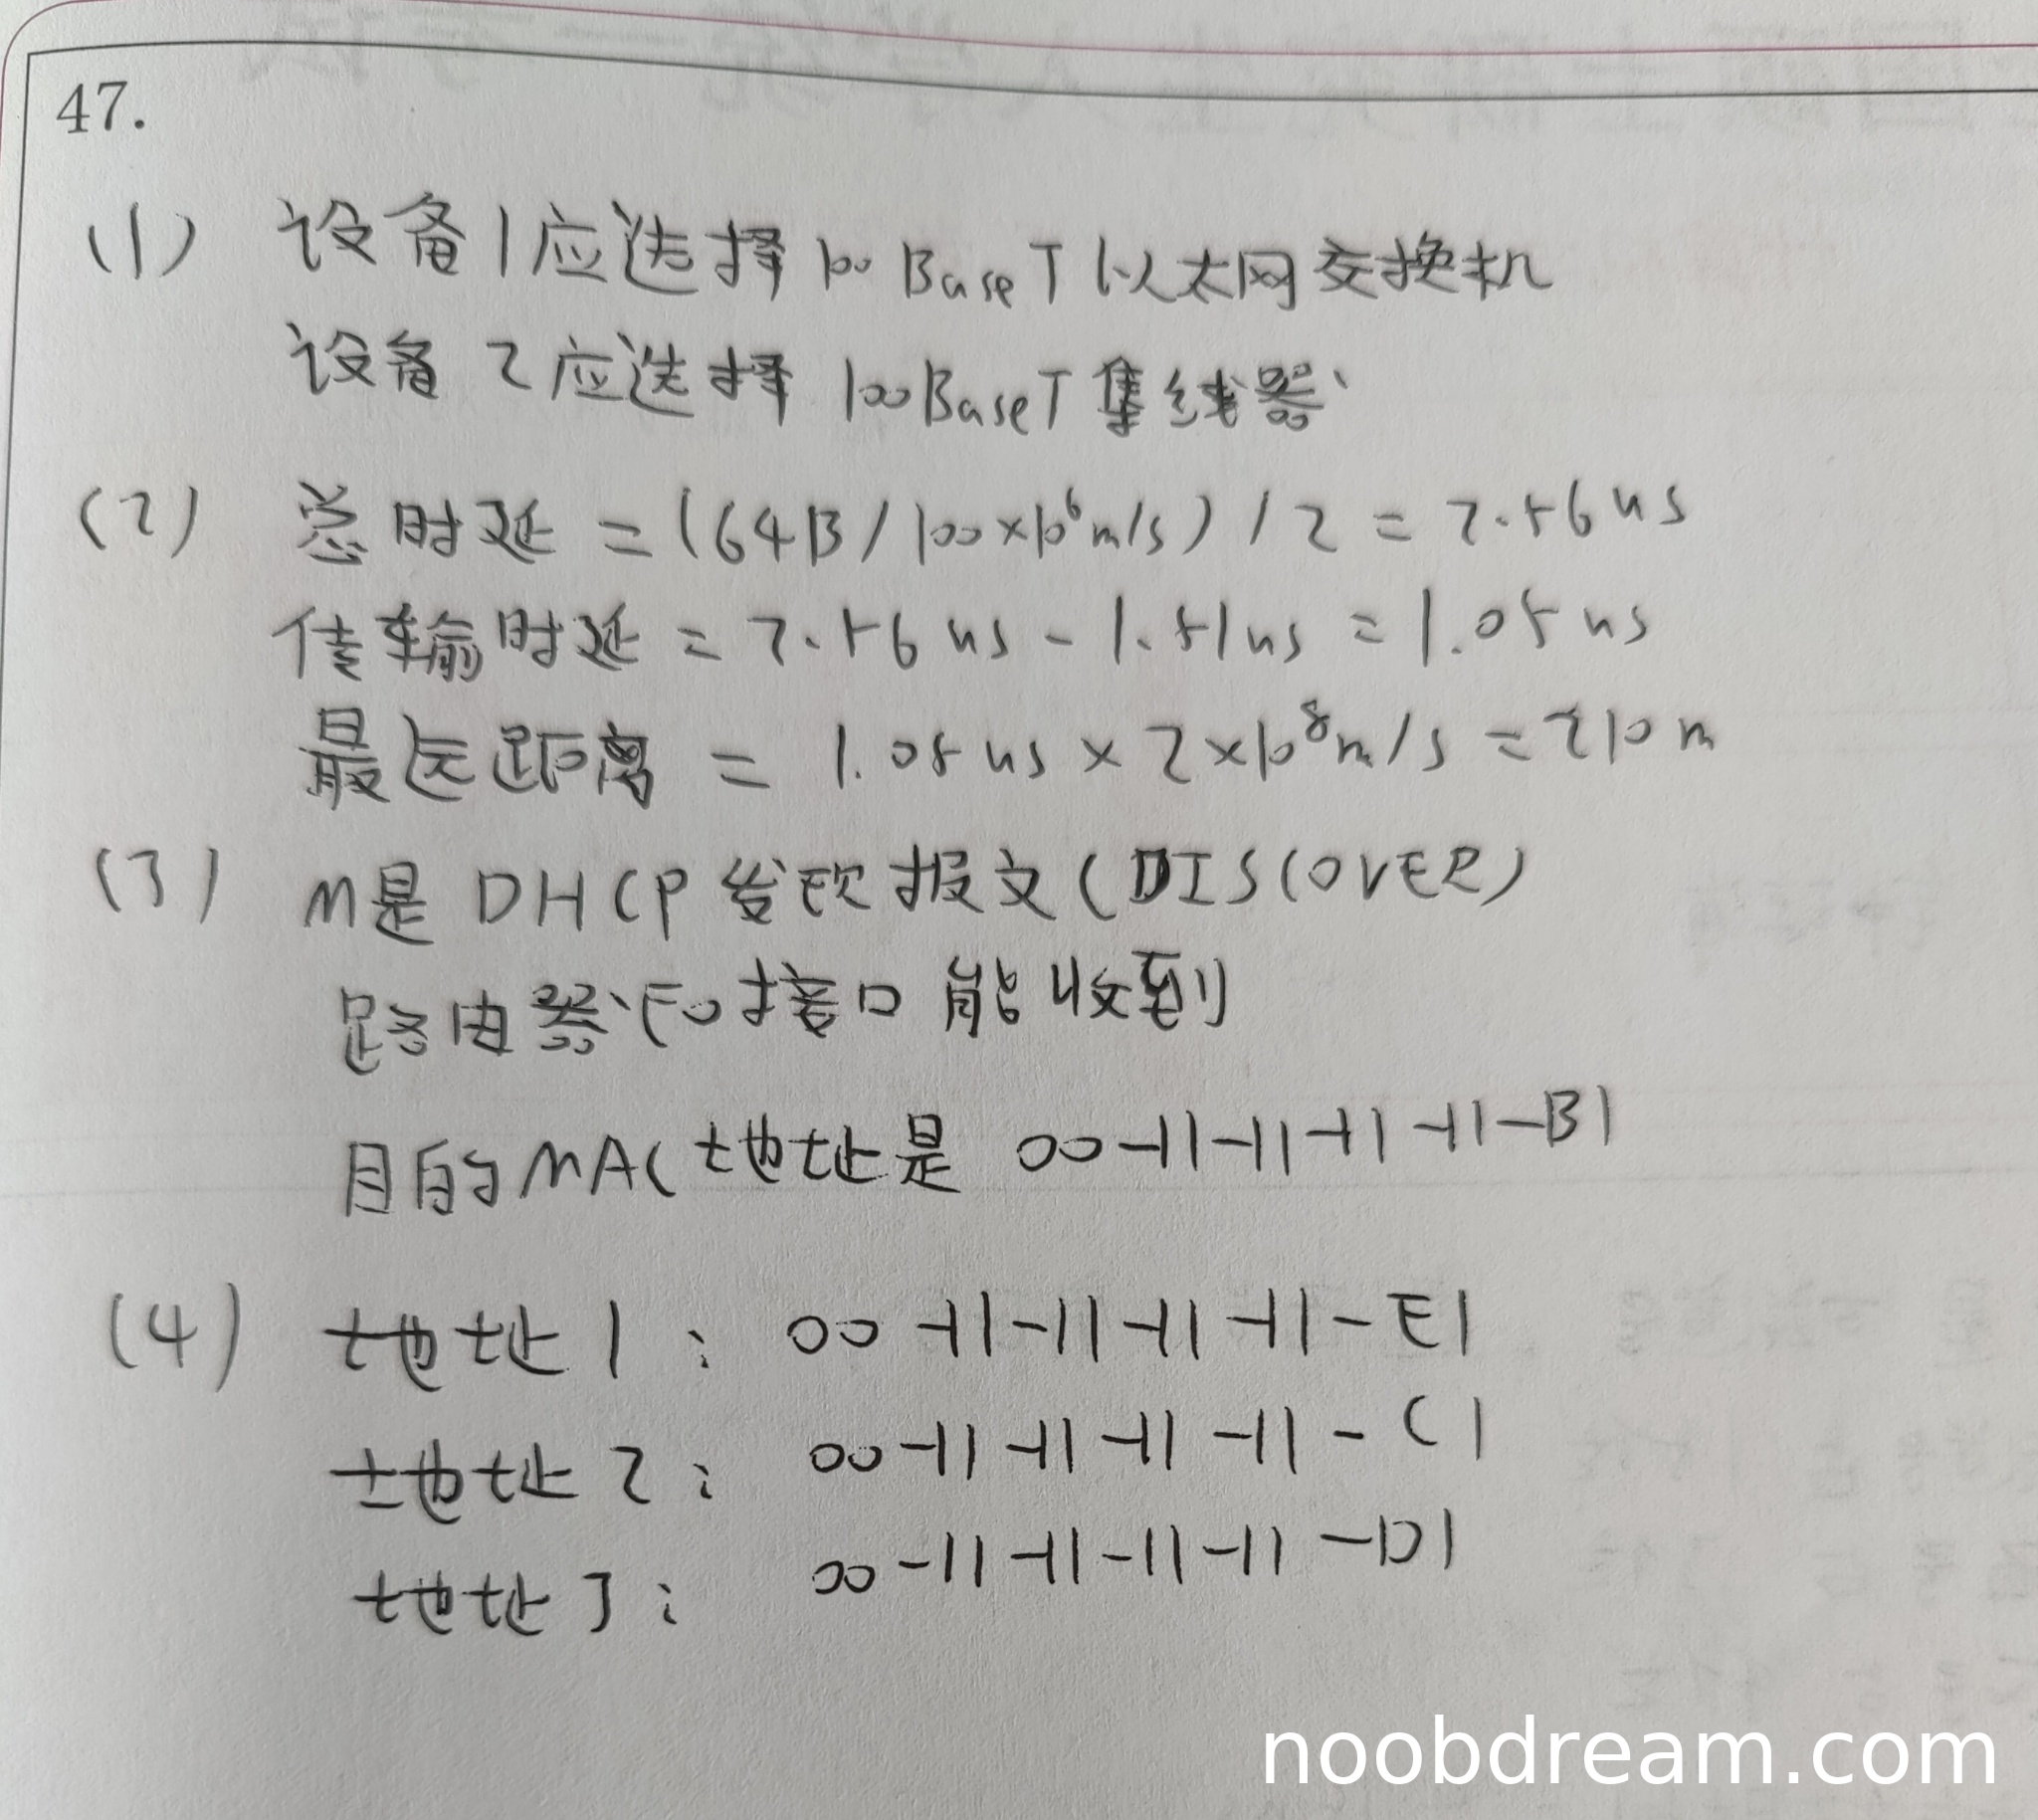 47.
(1) 设备1应选择100BaseT以太网交换机
设备2应选择100BaseT集线器
(2) 总时延 = (64B/100×10⁶m/s)/2 = 2.56us
传输时延 = 2.56us - 1.51us = 1.05us
最远距离 = 1.05us × 2×10⁸m/s = 210m
(3) M是DHCP发现报文(DISCOVER)
路由器E0接口能收到
目的MAC地址是 00-11-11-11-11-B1
(4) 地址1: 00-11-11-11-11-E1
地址2: 00-11-11-11-11-C1
地址3: 00-11-11-11-11-D1
noobdream.com